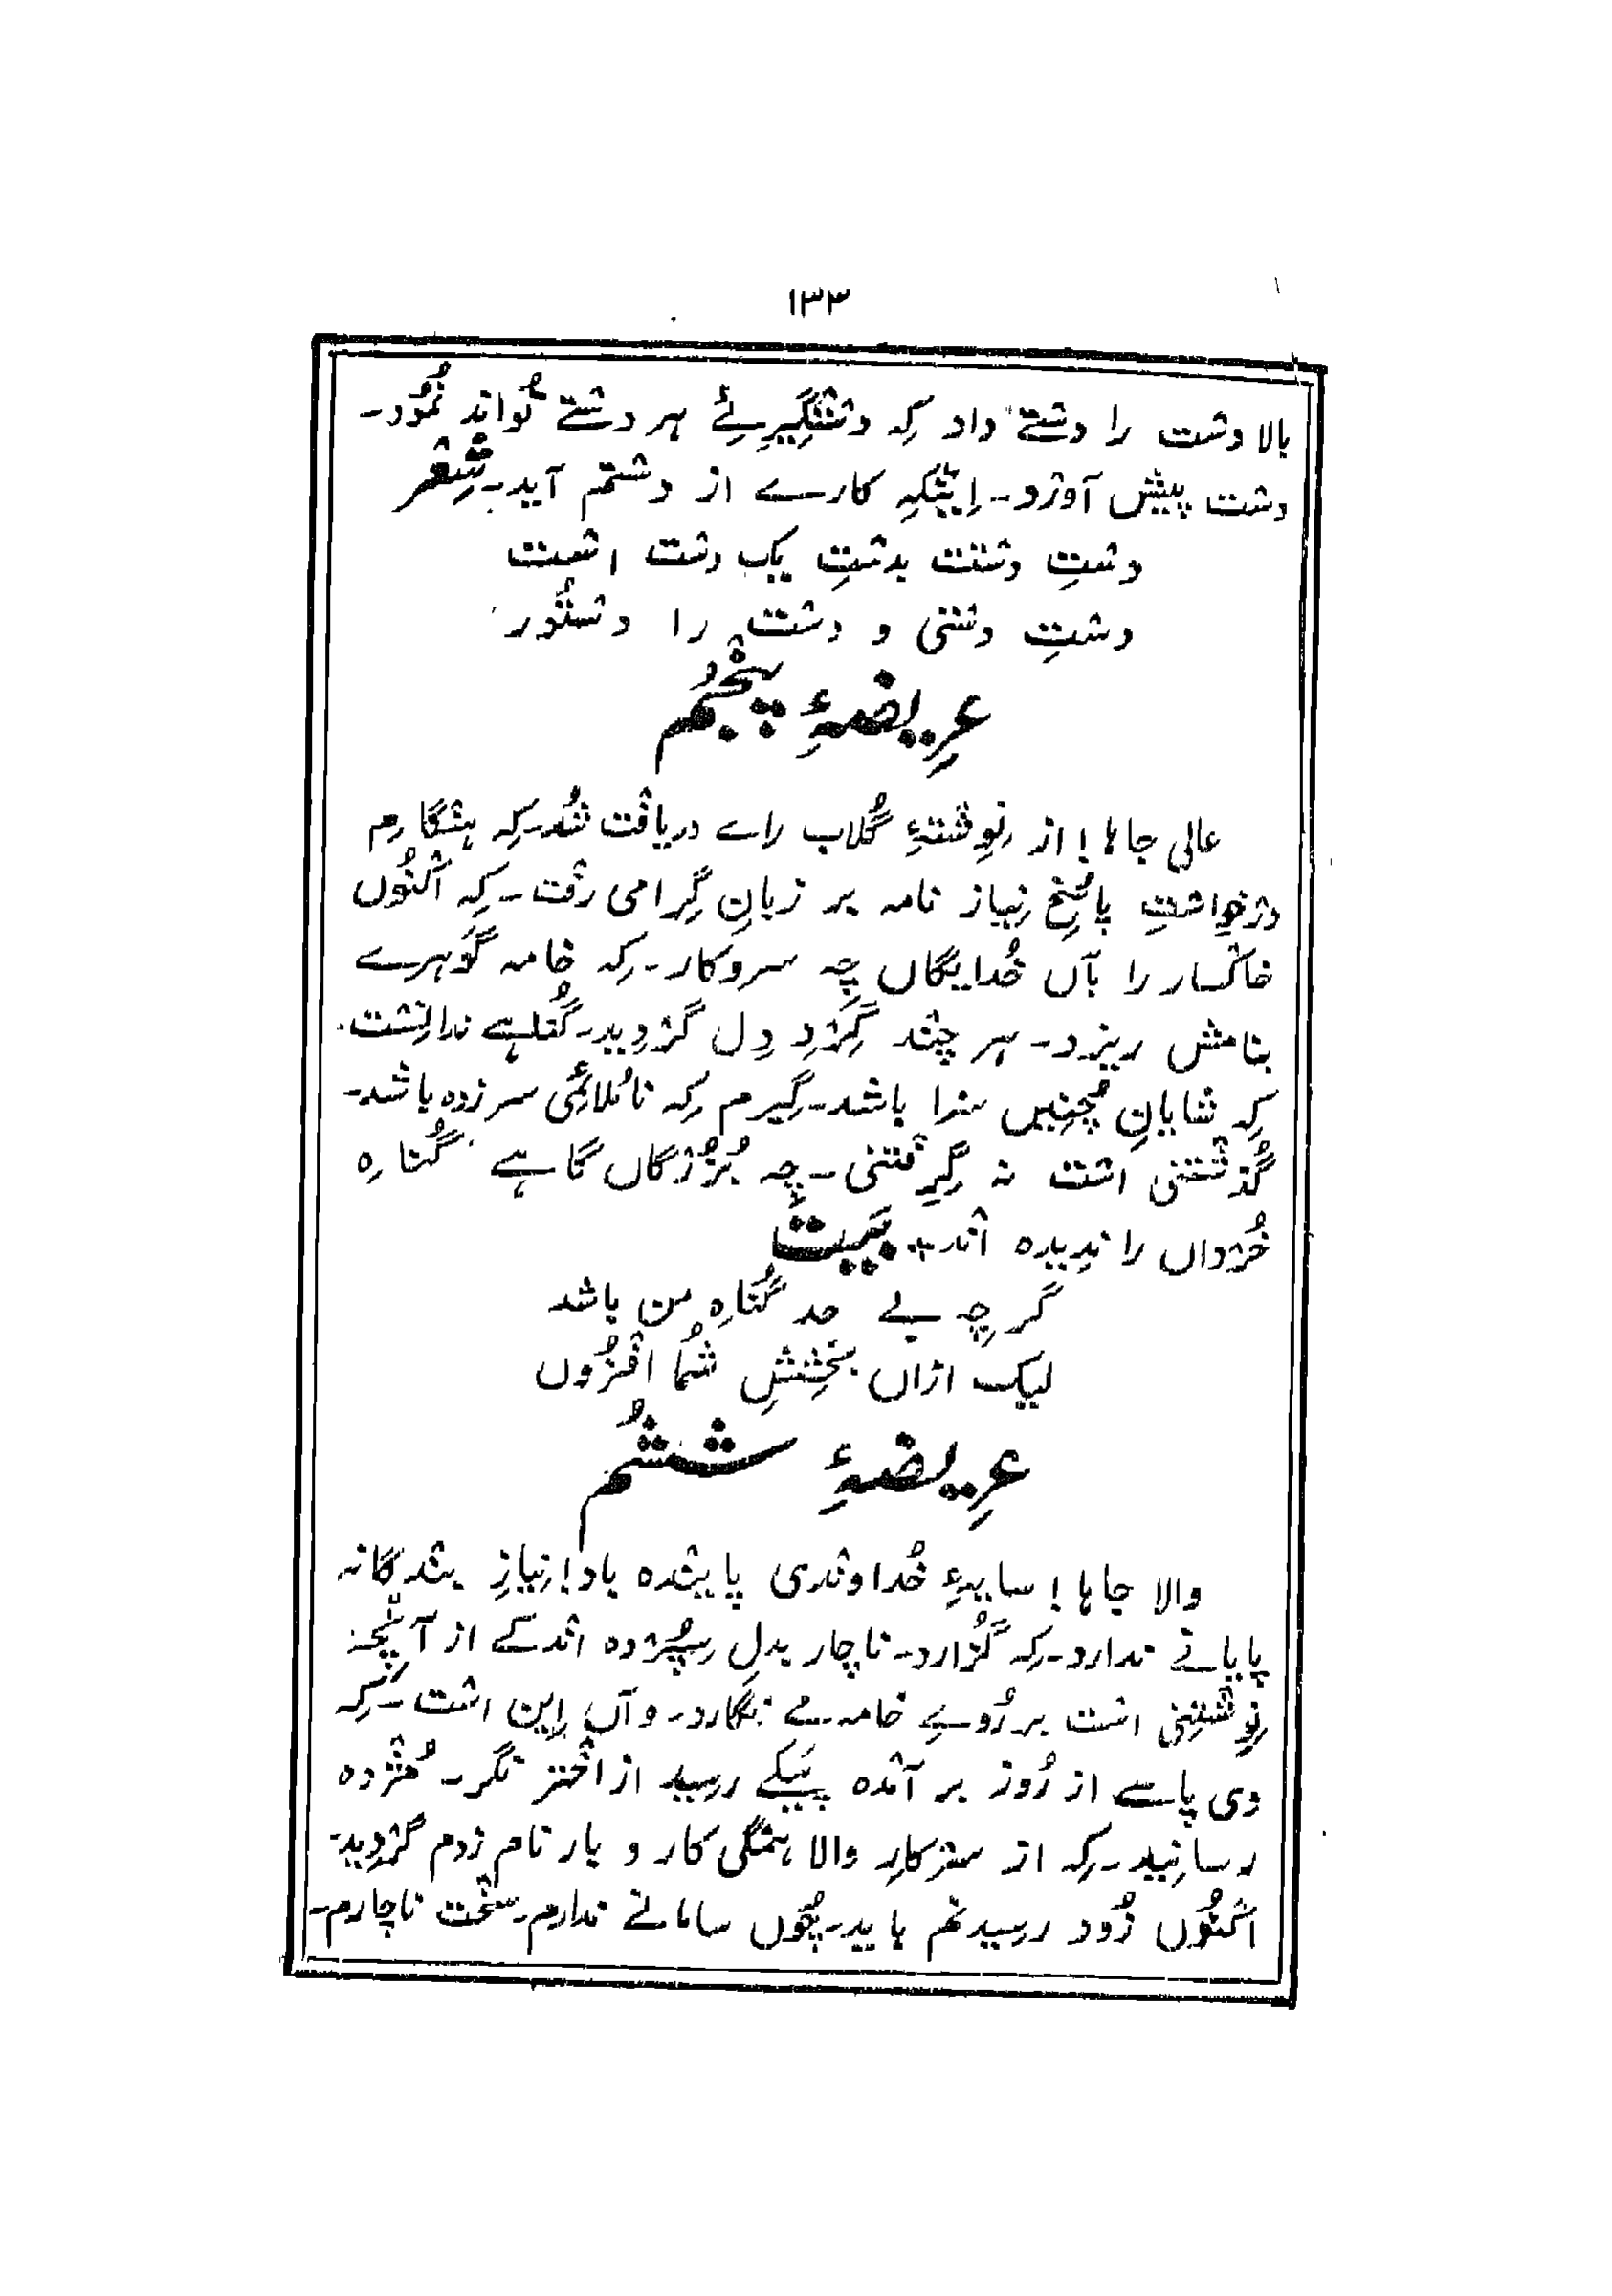 ۱۳۳
بالا دست را دستے داد کِہ دستگِیرِئے ہر دستے تُواند نُمُود۔
دست پیش آورد۔ اِینکِہ کارے از دستم آید۔ شِعر
دستِ دستت بدستِ یک دست است
دستِ دستی و دست را دستُور
عرِیضۂ پنجُم
عالی جاہا! از نِوِشتۂ گُلاب راے دریافت شُد۔ کِہ ہنگام
درخواستِ پاسُخِ نِیاز نامہ بر زبانِ گِرامی رفت۔ کِہ اکنُوں
خاکسار را بآں خُدایگاں چِہ سروکار۔ کِہ خامہ گَوہرے
بنامش ریزد۔ ہر چند گِردِ دِل گردِید۔ گُناہے ندانِست۔
کِہ شایانِ چُنِیں سزا باشد۔ گِیرم کِہ نامُلائمی سرزدہ باشد۔
گُذشتنی است نہ گِرِفتنی۔ چہ بُزُرگاں گاہے گُناہِ
خُرداں را ندِیدہ اند۔ بَیت
گرچِہ بے حد گُناہِ من باشد
لیک ازاں بخشِشِ شُما افزُوں
عرِیضۂ شششُم
والا جاہا! سایۂ خُداوندی پایندہ باد! نِیازِ بندگانہ
پایانے ندارد۔ کِہ گُزارد۔ ناچار بدِل سِپُردہ اندکے از آنچہ
نِوِشتنِی است بر رُوے خامہ مے نِگارد۔ و آں اِین است۔ کِہ
دی پاسے از رُوز بر آمدہ پَیکے رسِید از اختر نگر۔ مُژدہ
رسانِید۔ کِہ از سرکارِ والا ہمگی کار و بار نام زدم گردِید۔
اکنُوں زُود رسِیدنم باید۔ چُوں سامانے ندارم۔ سخت ناچارم۔